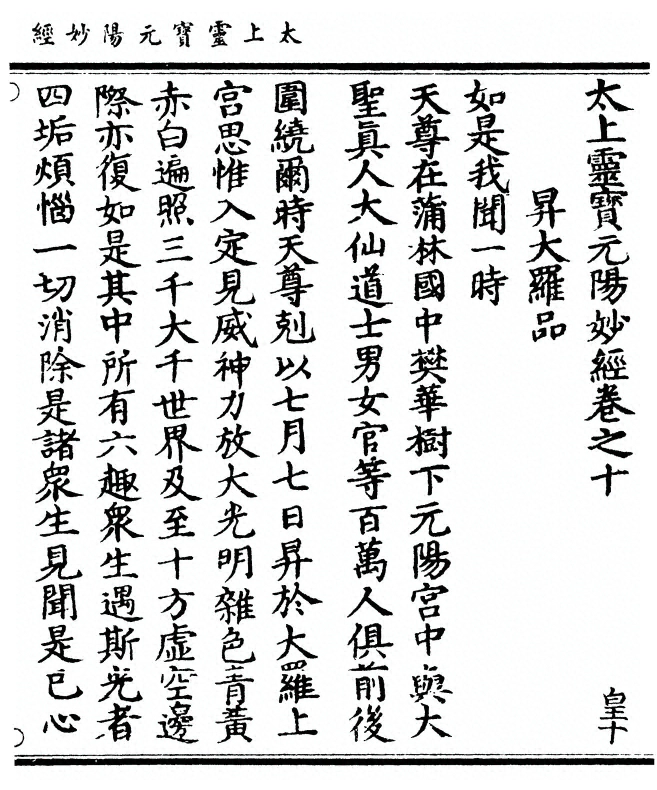 太上靈寶元陽妙經
太上靈寶元陽妙經卷之十
皇十
昇大羅品
如是我聞一時
天尊在蒲林國中樊華樹下元陽宮中與大
聖眞人大仙道士男女官等百萬人俱前後
圍繞爾時天尊剋以七月七日昇於大羅上
宮思惟入定見威神力放大光明雜色青黃
赤白遍照三千大千世界及至十方虛空邊
際亦復如是其中所有六趣衆生遇斯光者
四垢煩惱一切消除是諸衆生見聞是已心